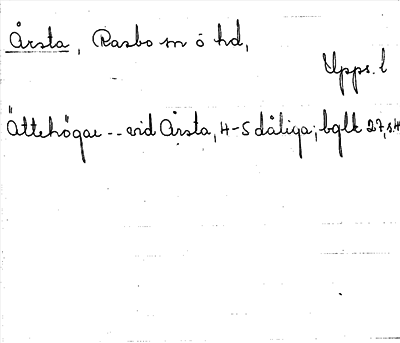 Årsta, Rasbo sn ö hd,
Upps. l
Ättehögar -- vid Årsta, 4-5 dåliga; bglk 27, s. 4